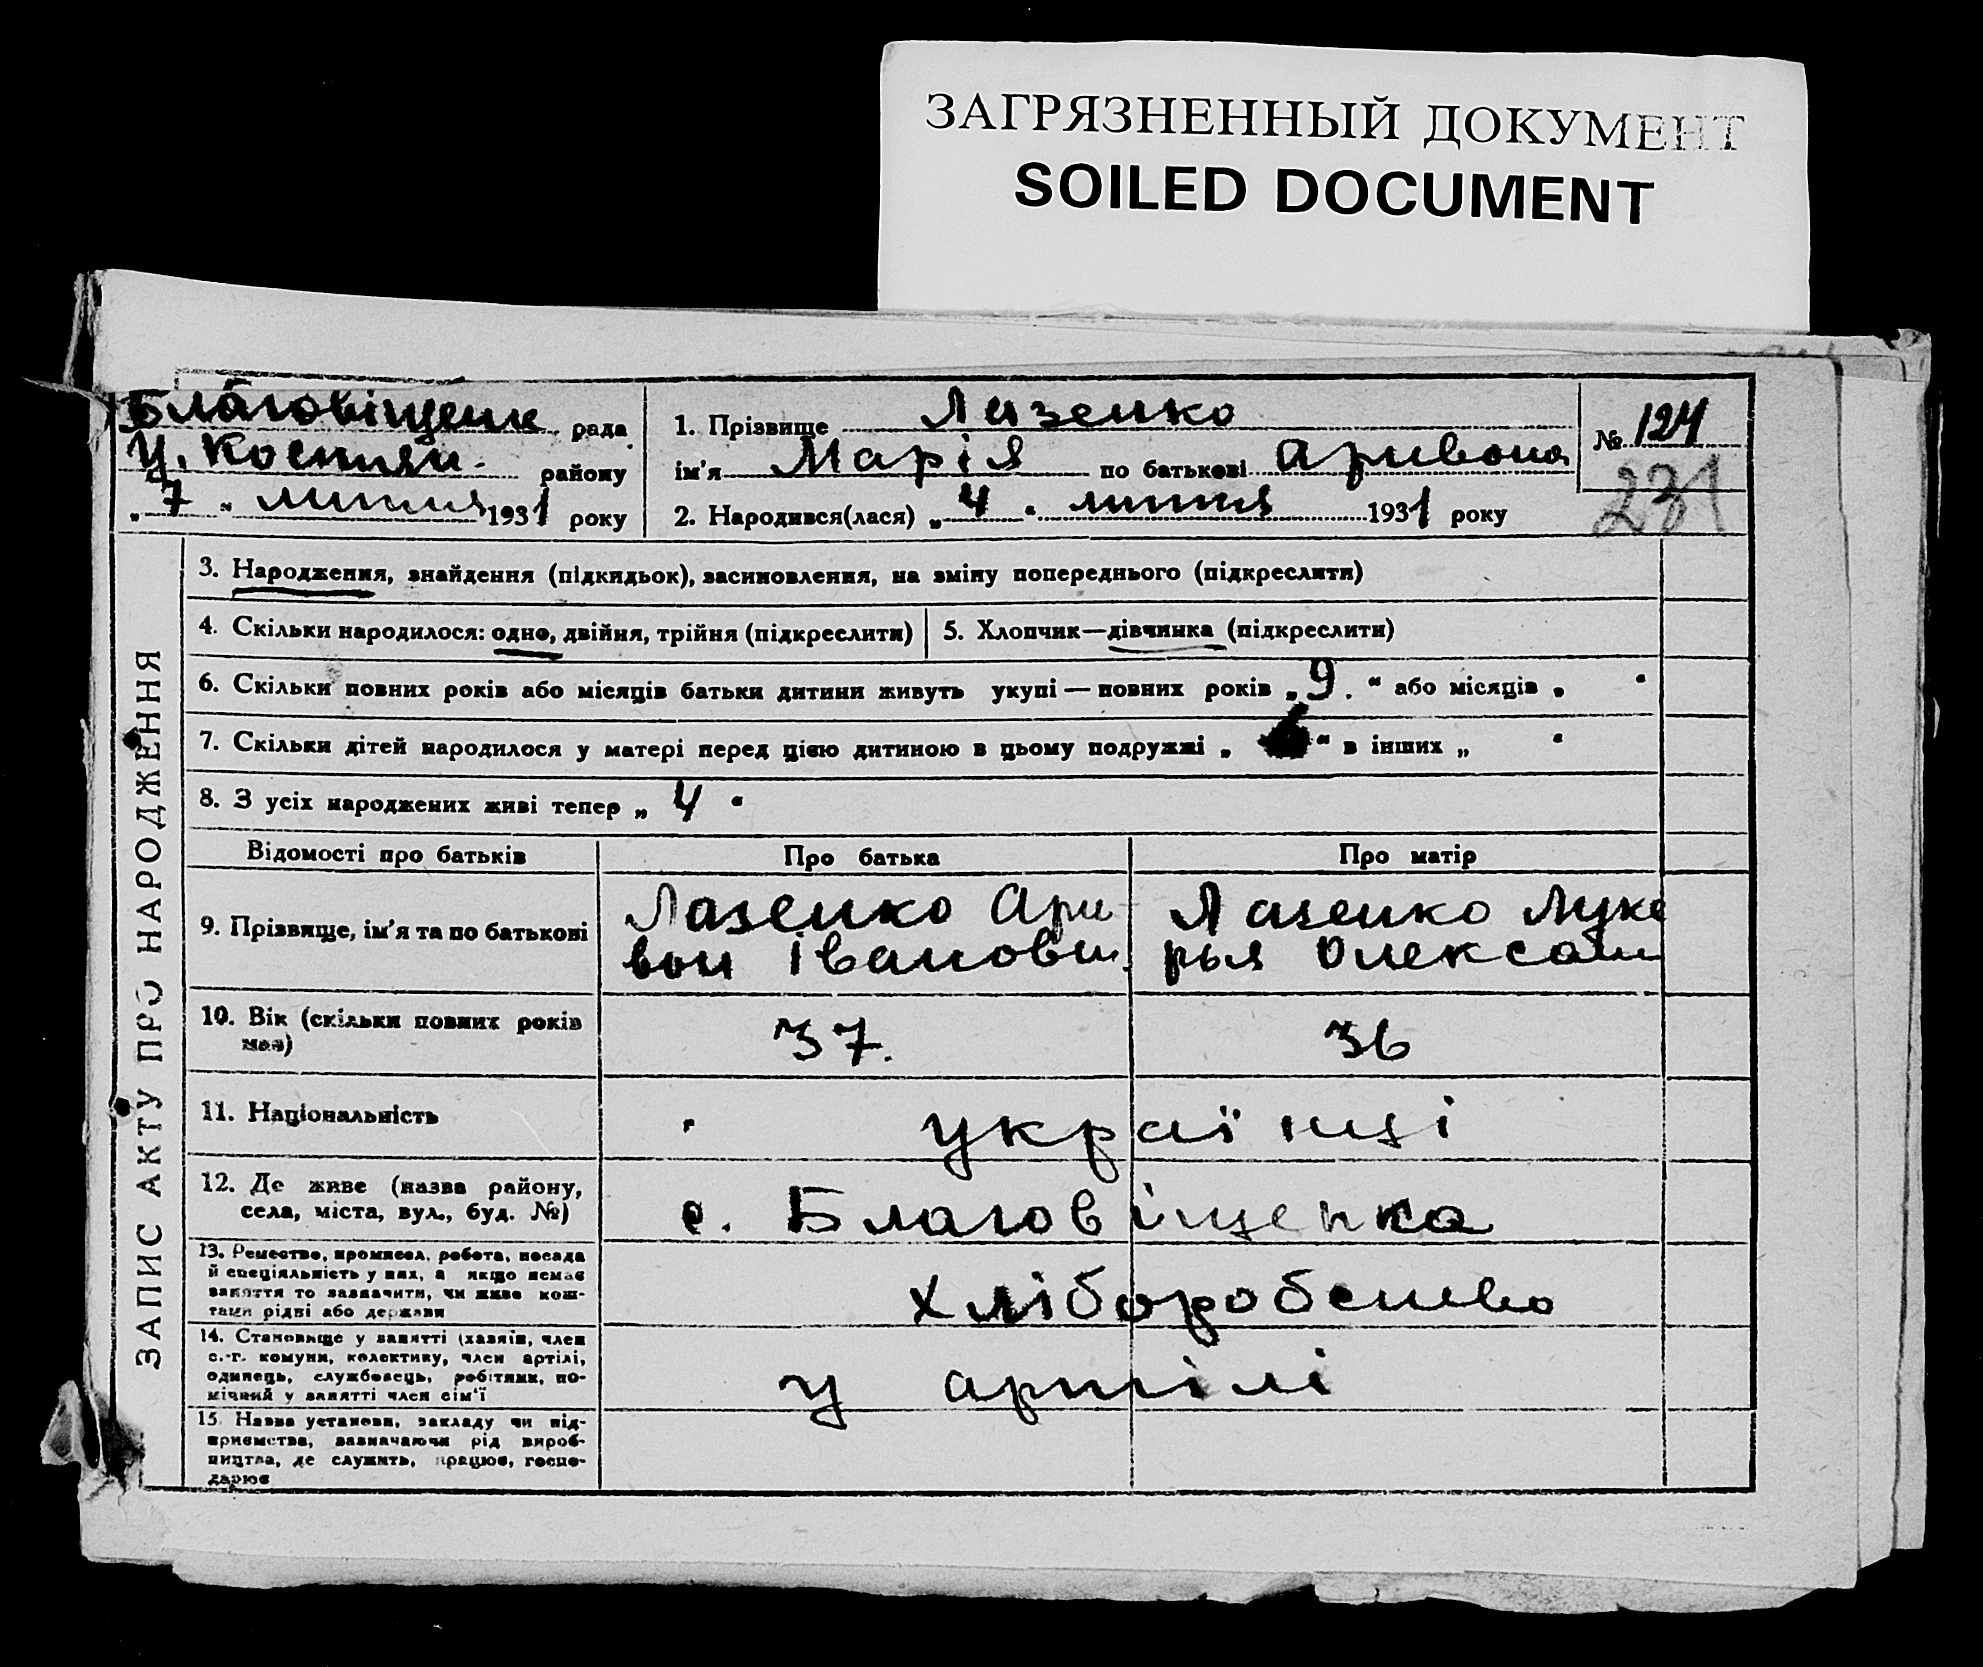 ЗАГРЯЗНЕННЫЙ ДОКУМЕНТ
SOILED DOCUMENT
Благовіщенк рада
району
„7“ липня 1931 року
1. Прізвище Лазенко
ім'я Марія по батькові Аривона
2. Народився(лася) „4“ липня 1931 року
№ 124
231
ЗАПИС АКТУ ПРО НАРОДЖЕННЯ
3. Народження, знайдення (підкидьок), засиновлення, на зміну попереднього (підкреслити)
4. Скільки народилося: одно, двійня, трійня (підкреслити)
5. Хлопчик—дівчинка (підкреслити)
6. Скільки повних років або місяців батьки дитини живуть укупі — повних років „9.“ або місяців „ “
7. Скільки дітей народилося у матері перед цією дитиною в цьому подружжі „ “ в інших „ “
8. З усіх народжених живі тепер „4“
Відомості про батьків
Про батька
Про матір
9. Прізвище, ім'я та по батькові
Лазенко Ари
вон Іванови
Лазенко Луке
рья Олексан
10. Вік (скільки повних років
має)
37.
36
11. Національність
українці
12. Де живе (назва району,
села, міста, вул., буд. №)
с. Благовіщенка
13. Ремество, промисел, робота, посада
й спеціяльність у них, а якщо немає
заняття то зазначити, чи живе кош-
тами рідні або держави
хліборобство
14. Становище у занятті (хазяїн, член
с.-г. комуни, колективу, член артілі,
одинець, службовець, робітник, по-
мічний у занятті член сім'ї
у артілі
15. Назва установи, закладу чи під-
приємства, зазначаючи рід вироб-
ництва, де служить, працює, госпо-
дарює